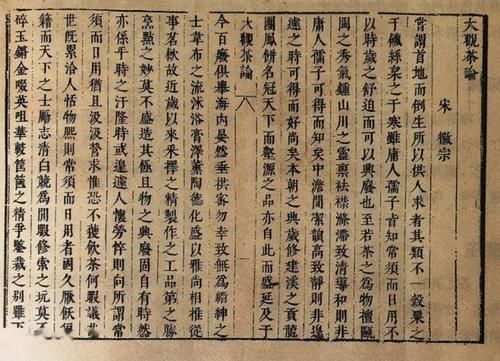 大觀茶論
宋 徽宗
嘗謂首地而倒生所以供人求者其類不一穀粟之
于饑絲枲之于寒雖庸人孺子皆知常須而日用不
以時歲之舒迫而可以興廢也至若茶之為物擅甌
閩之秀氣鍾山川之靈稟祛襟滌滯致清導和則非
庸人孺子可得而知矣冲澹閒潔韻高致靜則非遑
遽之時可得而好尚矣本朝之興歲修建溪之貢龍
團鳳餅名冠天下而壑源之品亦自此而盛延及于
大觀茶論
今百廢俱舉海內晏然垂拱密勿幸致無為縉紳之
士韋布之流沐浴膏澤薰陶德化盛以雅尚相推從
事茗飲故近歲以來采擇之精製作之工品第之勝
烹點之妙莫不盛造其極且物之興廢固自有時然
亦係乎時之汙隆時或遑遽人懷勞悴則向所謂常
須而日用猶且汲汲營求惟恐不獲飲茶何暇議
世既累洽人恬物熙則常須而日用者固久厭飫狼
籍而天下之士勵志清白競為閒暇修索之玩莫不
碎玉鏘金啜英咀華較篋笥之精爭鑒裁之別雖下